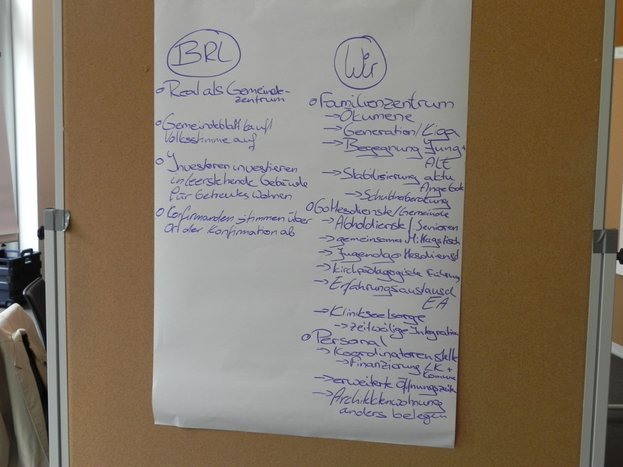 BRL
o Real als Gemeinde-
zentrum
o Gemeindeblatt kauft
Volksstimme auf
o Investoren investieren
in leerstehende Gebäude
für Betreutes Wohnen
o Konfirmanden stimmen über
Ort der Konfirmation ab
Wir
o Familienzentrum
→ Ökumene
→ Generation/Kiga
→ Begegnung Jung +
Alt
→ Stabilisierung aktu.
Angebote
→ Schuldnerberatung
o Gottesdienste/Gemeinde
→ Abholdienste/Senioren
→ gemeinsamer Mittagstisch
→ Jugendgottesdienst
→ Kirchpädagogische Führung
→ Erfahrungsaustausch
EA
→ Klinikseelsorge
→ zeitweilige Integration
o Personal
→ Koordinatorenstelle
→ Finanzierung LK +
Kommune
→ erweiterte Öffnungszeiten
→ Architektenwohnung
anders belegen